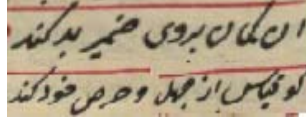 آن گمان بروی ضمیر بد کند
کو قیاس از جهل و حرص خود کند